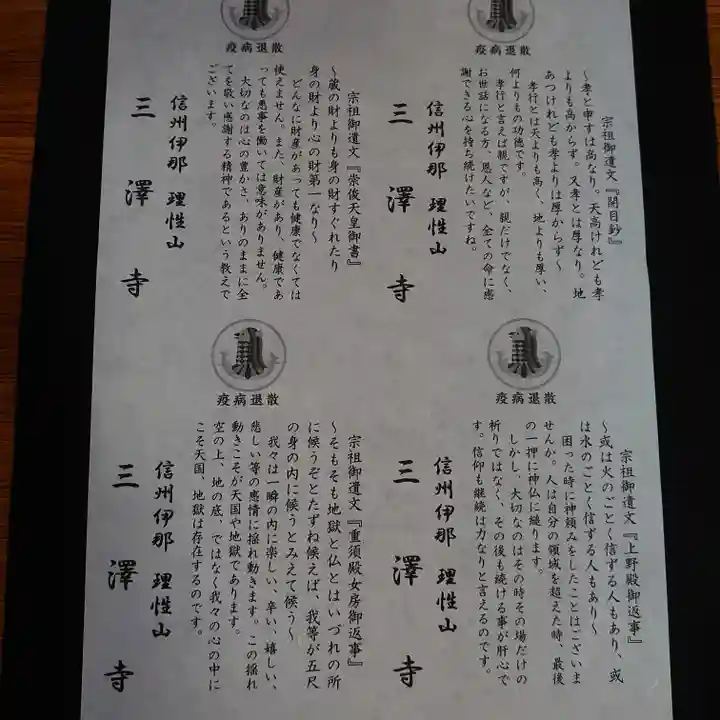 疫病退散
宗祖御遺文『開目鈔』
～孝と申すは高なり。天高けれども孝
よりも高からず。又孝とは厚なり。地
あつけれども孝よりは厚からず～
孝行とは天よりも高く、地よりも厚い、
何よりもの功徳です。
孝行と言えば親ですが、親だけでなく、
お世話になる方、恩人など、全ての命に感
謝できる心を持ち続けたいですね。
信州伊那 理性山
三澤寺
疫病退散
宗祖御遺文『崇俊天皇御書』
～蔵の財よりも身の財すぐれたり
身の財より心の財第一なり～
どんなに財産があっても健康でなくては
使えません。また、財産があり、健康であ
っても悪事を働いては意味がありません。
大切なのは心の豊かさ、ありのままに全
てを敬い感謝する精神であるという教えで
ございます。
信州伊那 理性山
三澤寺
疫病退散
宗祖御遺文『上野殿御返事』
～或は火のごとく信ずる人もあり、或
は水のごとく信ずる人もあり～
困った時に神頼みをしたことはございま
せんか。人は自分の領域を超えた時、最後
の一押に神仏に縋ります。
しかし、大切なのはその時その場だけの
祈りではなく、その後も続ける事が肝心で
す。信仰も継続は力なりと言えるのです。
信州伊那 理性山
三澤寺
疫病退散
宗祖御遺文『重須殿女房御返事』
～そもそも地獄と仏とはいづれの所
に候うぞとたずね候えば、我等が五尺
の身の内に候うとみえて候う～
我々は一瞬の内に楽しい、辛い、嬉しい、
悲しい等の感情に揺れ動きます。この揺れ
動きこそが天国や地獄であります。
空の上、地の底、ではなく我々の心の中に
こそ天国、地獄は存在するのです。
信州伊那 理性山
三澤寺